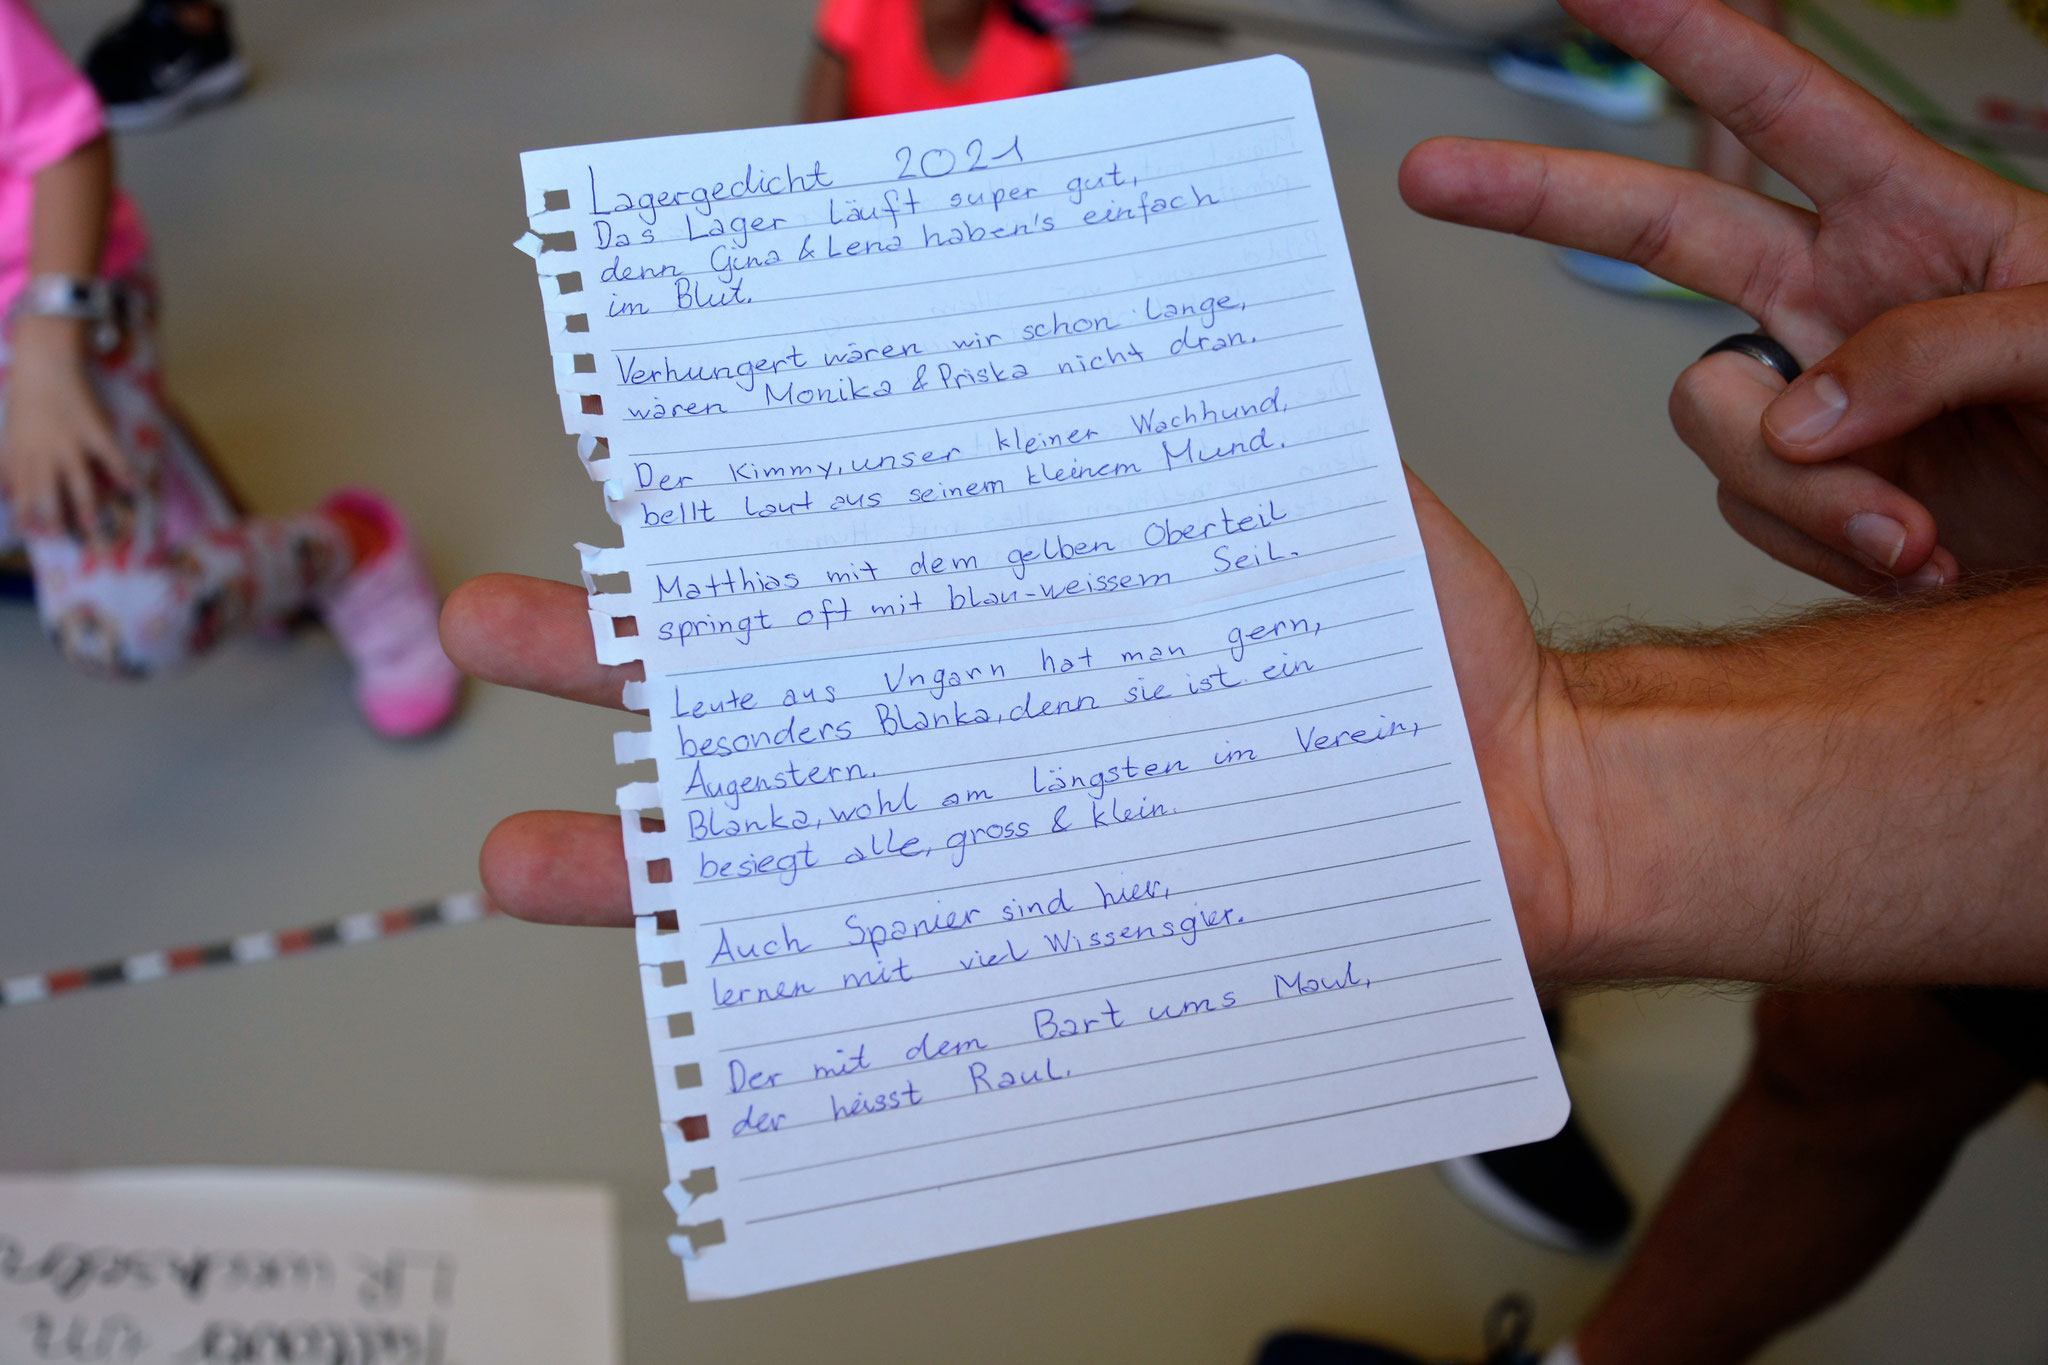 Lagergedicht 2021
Das Lager läuft super gut,
denn Gina & Lena haben's einfach
im Blut.
Verhungert wären wir schon lange,
wären Monika & Priska nicht dran.
Der Kimmy, unser kleiner Wachhund,
bellt laut aus seinem kleinem Mund.
Matthias mit dem gelben Oberteil
springt oft mit blau-weissem Seil.
Leute aus Ungarn hat man gern,
besonders Blanka, denn sie ist ein
Augenstern.
Blanka, wohl am längsten im Verein,
besiegt alle, gross & klein.
Auch Spanier sind hier,
lernen mit viel Wissensgier.
Der mit dem Bart ums Maul,
der heisst Raul.